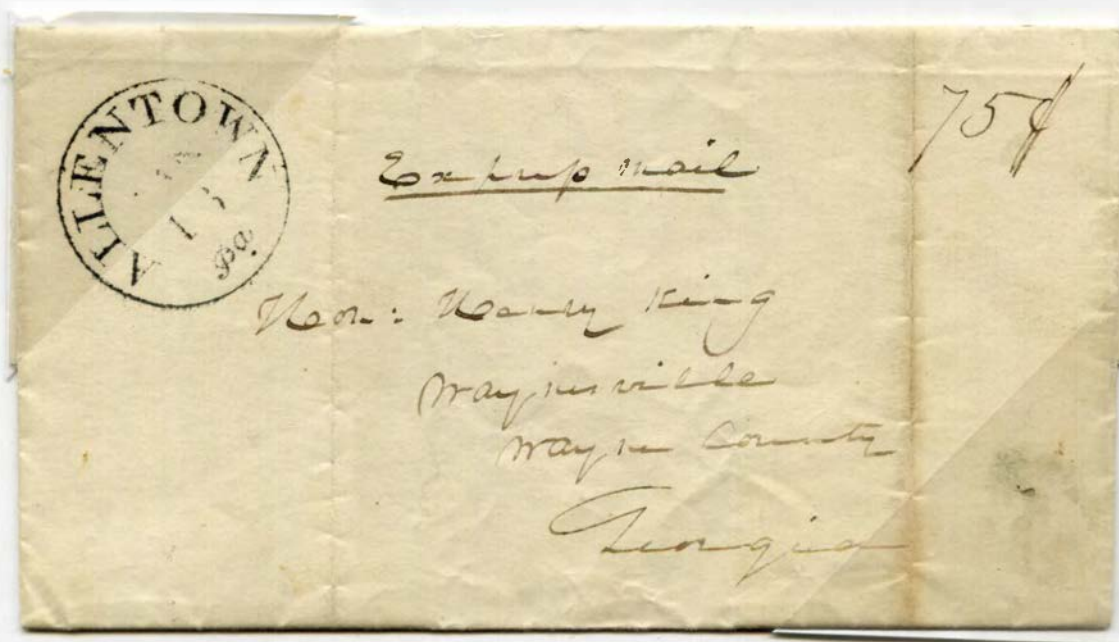 ALLENTOWN
13
Pa.
Express Mail
75¢
Hon: Henry King
Waynesville
Wayne County
Georgia